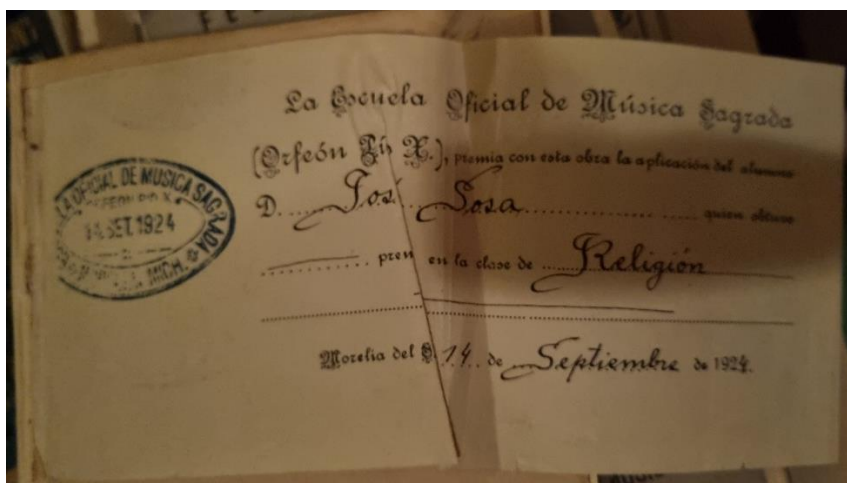 La Escuela Oficial de Música Sagrada
(Orfeón Pío X.), premia con esta obra la aplicación del alumno
D. José Sosa quien obtuvo
en la clase de Religión
Morelia del S. 14 de Septiembre de 1924.
OFICIAL DE MUSICA SAGRADA
ORFEON PIO X
14 SET. 1924
MICH.